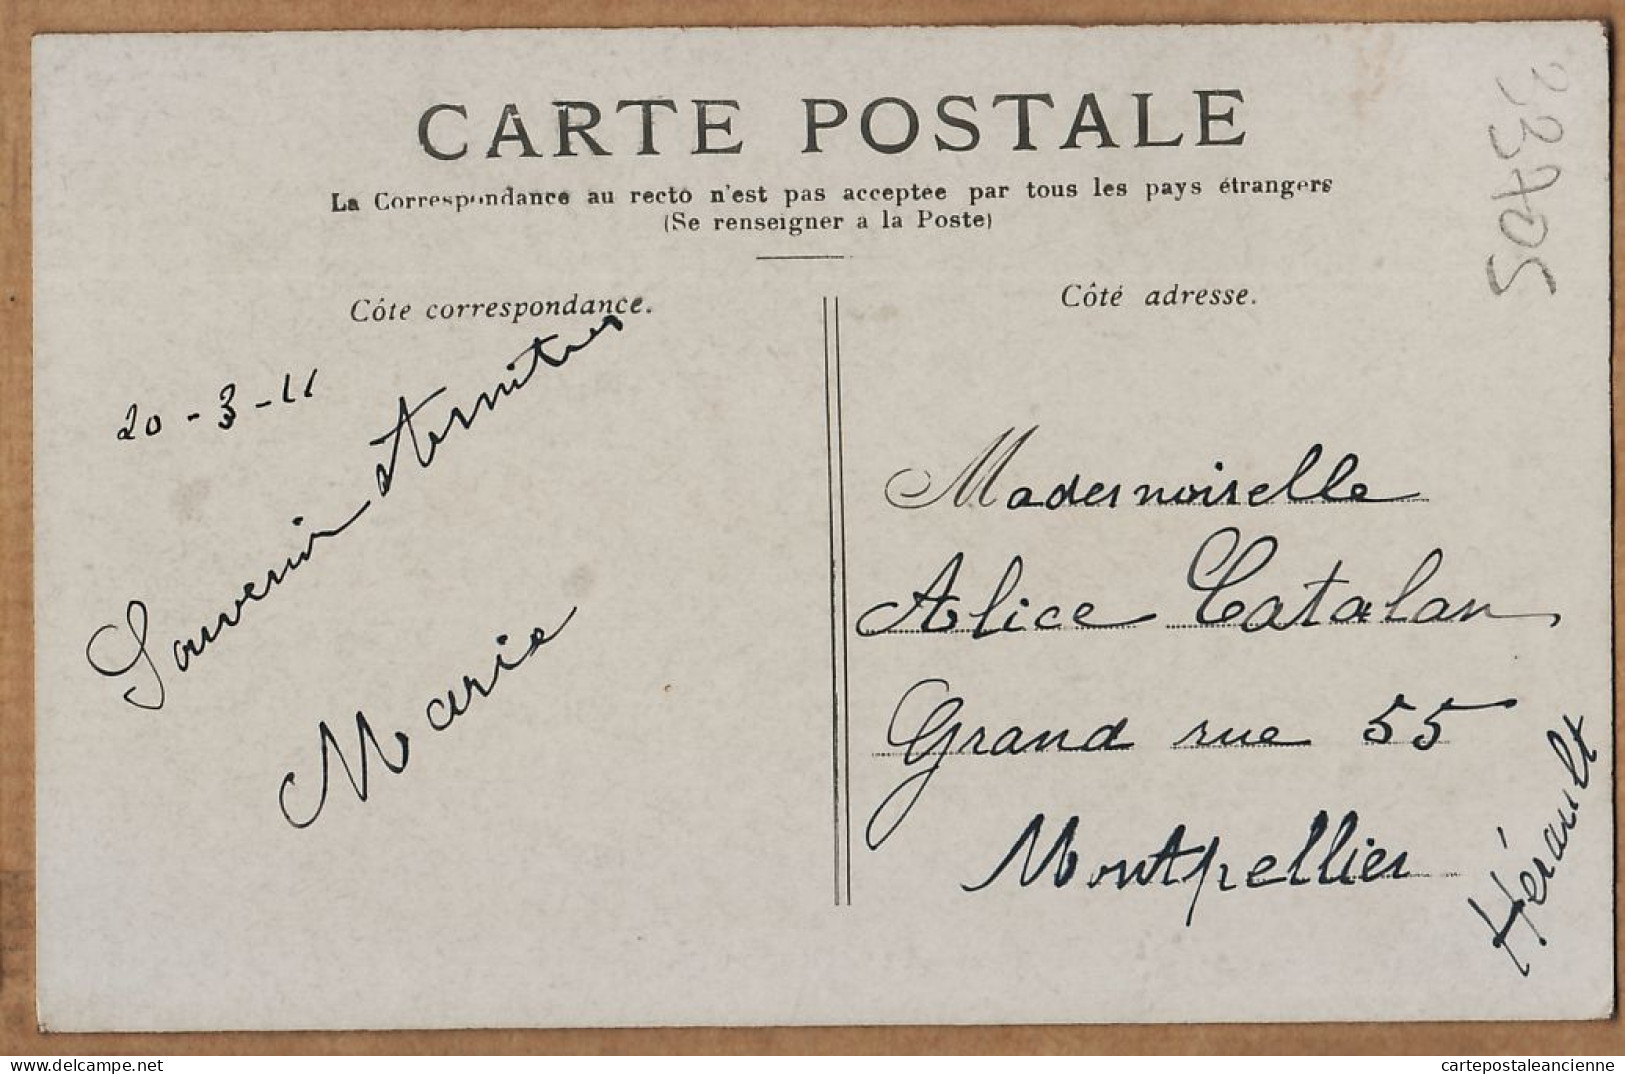 CARTE POSTALE
La Correspondance au recto n'est pas acceptée par tous les pays étrangers
(Se renseigner a la Poste)
Côte correspondance.
20 - 3 - 11
Souvenir
Marie
Côté adresse.
Mademoiselle
Alice Catalan
Grand rue 55
Montpellier
Hérault
33705
cartepostaleancienne